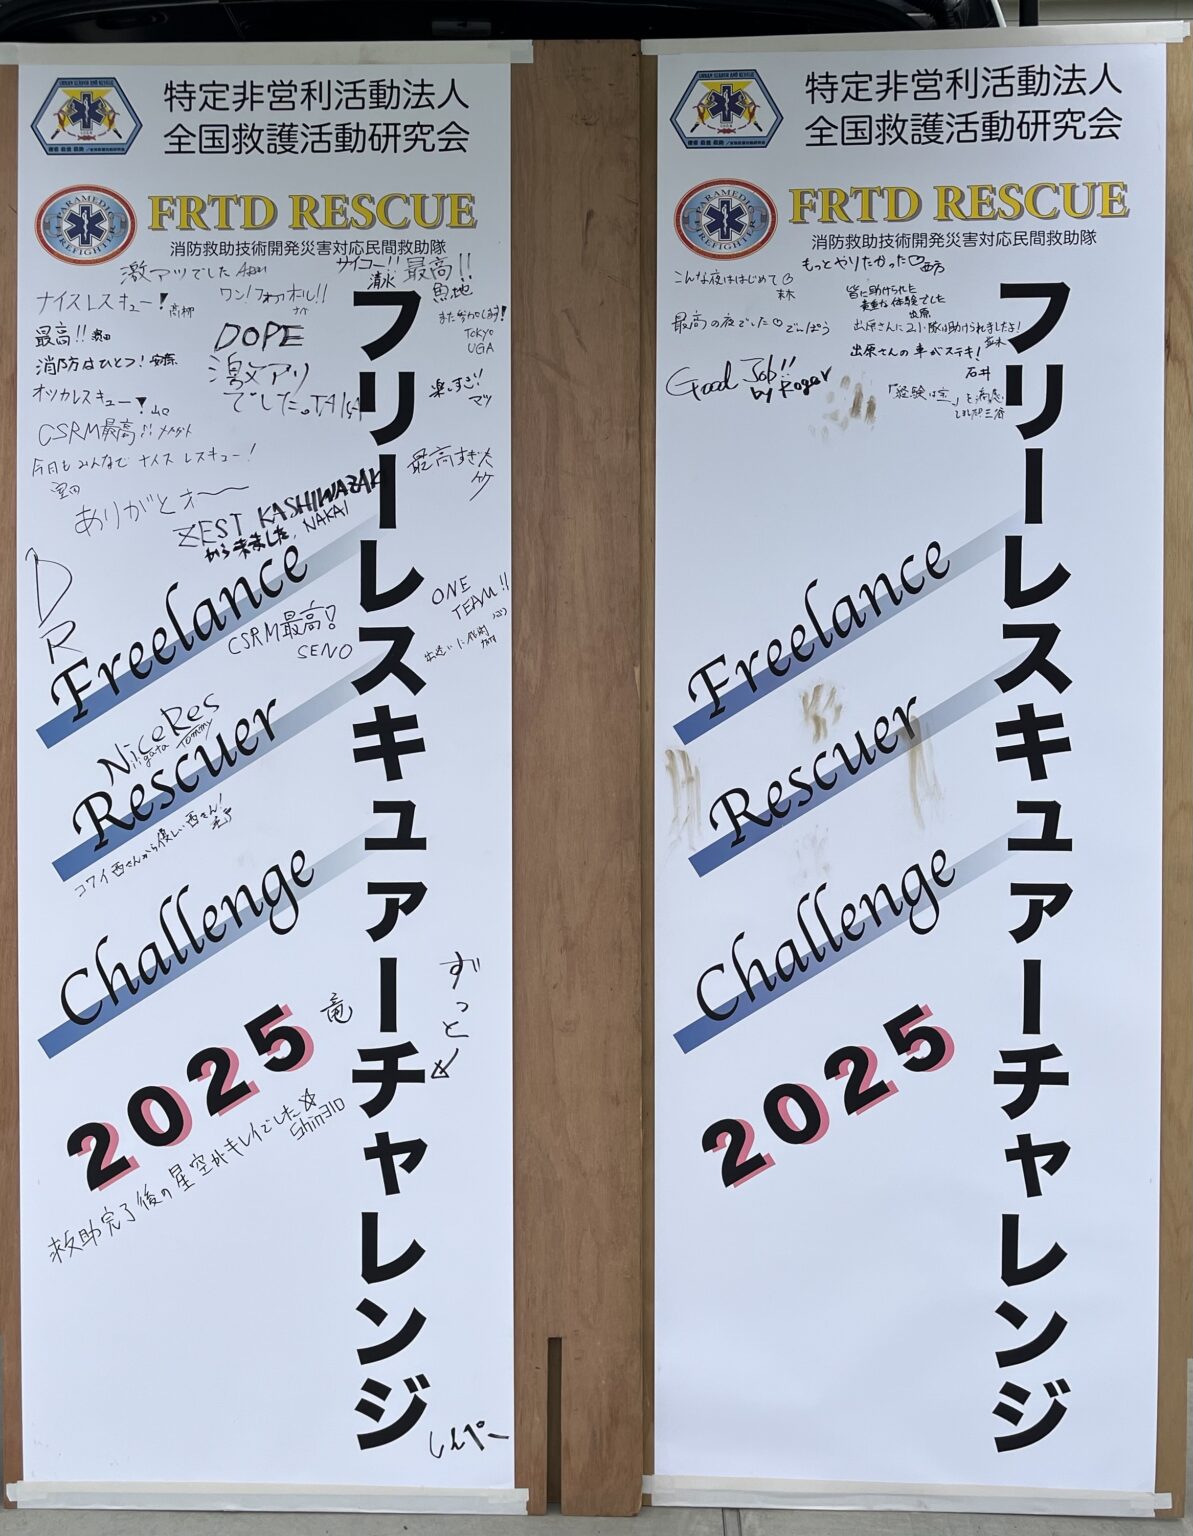 特定非営利活動法人
全国救護活動研究会
PARAMEDIC
FIREFIGHTER
FRTD RESCUE
消防救助技術開発災害対応民間救助隊
激アツでした
サイコー!!
清水
最高!!
ナイスレスキュー!
高柳
ワン!フォアオル!!
最高!!
DOPE
また参加します!
TOKYO
UGA
消防はひとつ!
激アツ
でした。TAIGA
楽しすご!!
マツ
オツカレスキュー!
CSRM最高!!
今日もみんなでナイスレスキュー!
最高すぎた
竹
ありがとォ〜
ZEST KASHIWAZAKI
から来ました。NAKAI
DR
ONE
TEAM!!
CSRM最高!
SENO
出逢いに感謝
Nice Res
iigata Tommy
コワイ西さんから優しい西さん!
竜
ずっと
救助完了後の星空がキレイでした☆
Shin310
しんぺー
フリーレスキュアーチャレンジ
Freelance
Rescuer
Challenge
2025
URBAN SEARCH AND RESCUE
特定非営利活動法人
全国救護活動研究会
PARAMEDIC
FIREFIGHTER
FRTD RESCUE
消防救助技術開発災害対応民間救助隊
こんな夜ははじめて♡
もっとやりたかった♡西方
皆に助けられた
貴重な体験でした
出原
最高の夜でした♡でんぱう
出原さんに2小隊は助けられましたよ!
出原さんの車がステキ!
石井
Good Job!!
by Roger
「経験は宝」を痛感
しました三谷
フリーレスキュアーチャレンジ
Freelance
Rescuer
Challenge
2025